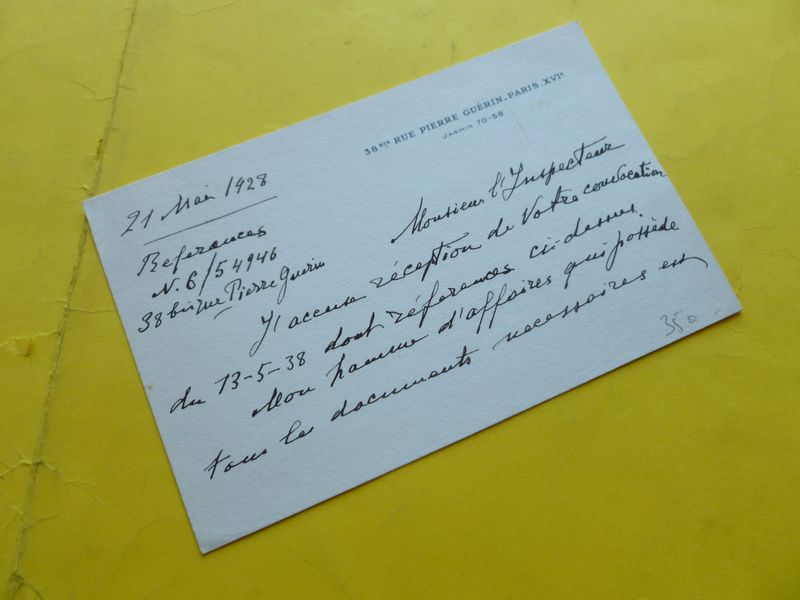 38 BIS RUE PIERRE GUÉRIN_PARIS_XVIe
JASMIN 70-58
21 Mai 1928
References
N. 6/54946
38 bis rue Pierre Guérin
Monsieur l'Inspecteur
J'accuse réception de Votre convocation
du 13-5-38 dont références ci-dessus.
Mon homme d'affaires qui possède
tous les documents necessaires est
350